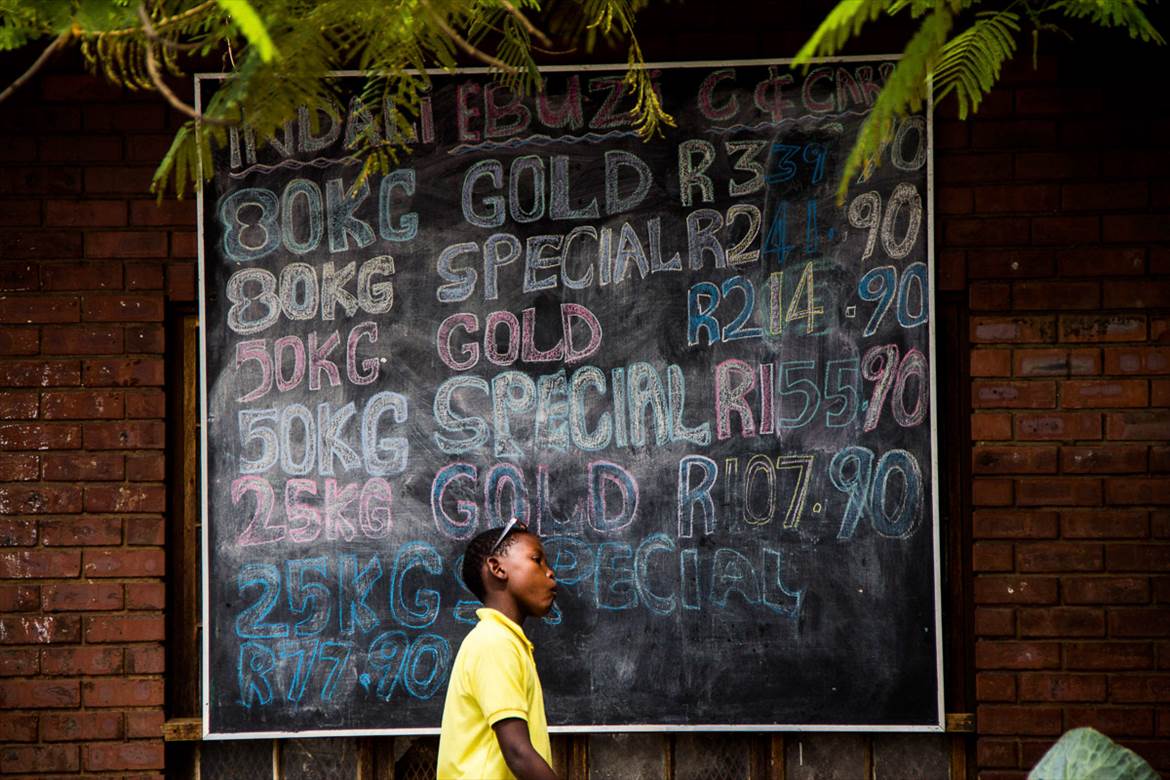 INDALI EBUZI C & CARR
80KG GOLD R339 90
80KG SPECIAL R241.90
50KG GOLD R214.90
50KG SPECIAL R155.90
25KG GOLD R107.90
25KG SPECIAL
R77.90